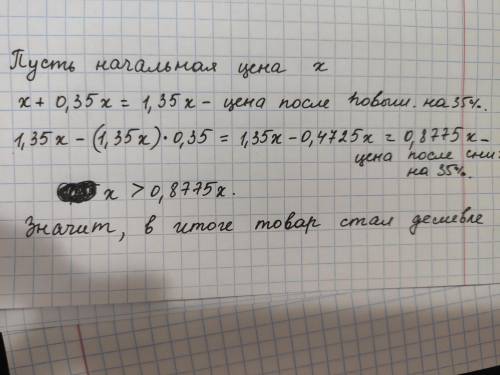 Пусть начальная цена x
x + 0,35x = 1,35x - цена после повыш. на 35%.
1,35x - (1,35x)·0,35 = 1,35x - 0,4725x = 0,8775x -
цена после сни.
на 35%.
x > 0,8775x.
Значит, в итоге товар стал дешевле